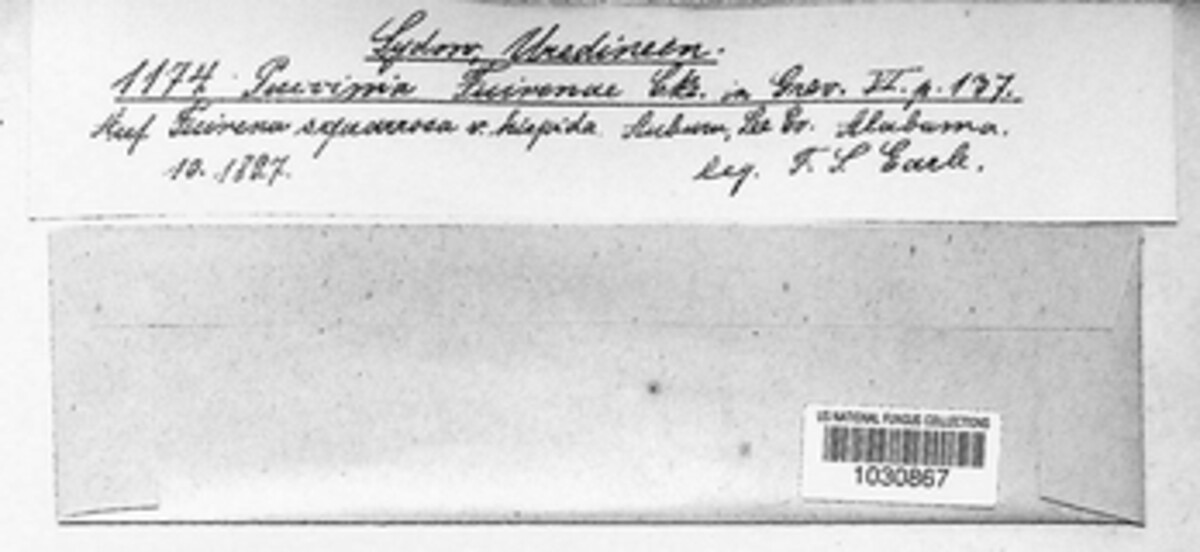 Sydow, Uredineen.
1174 Puccinia Fuirenae Cke. in Grev. VI. p. 137.
Auf Fuirena squarrosa v. hispida Auburn, Lee Co. Alabama.
10. 1897. leg. F. S. Earle.
US NATIONAL FUNGUS COLLECTIONS
1030867